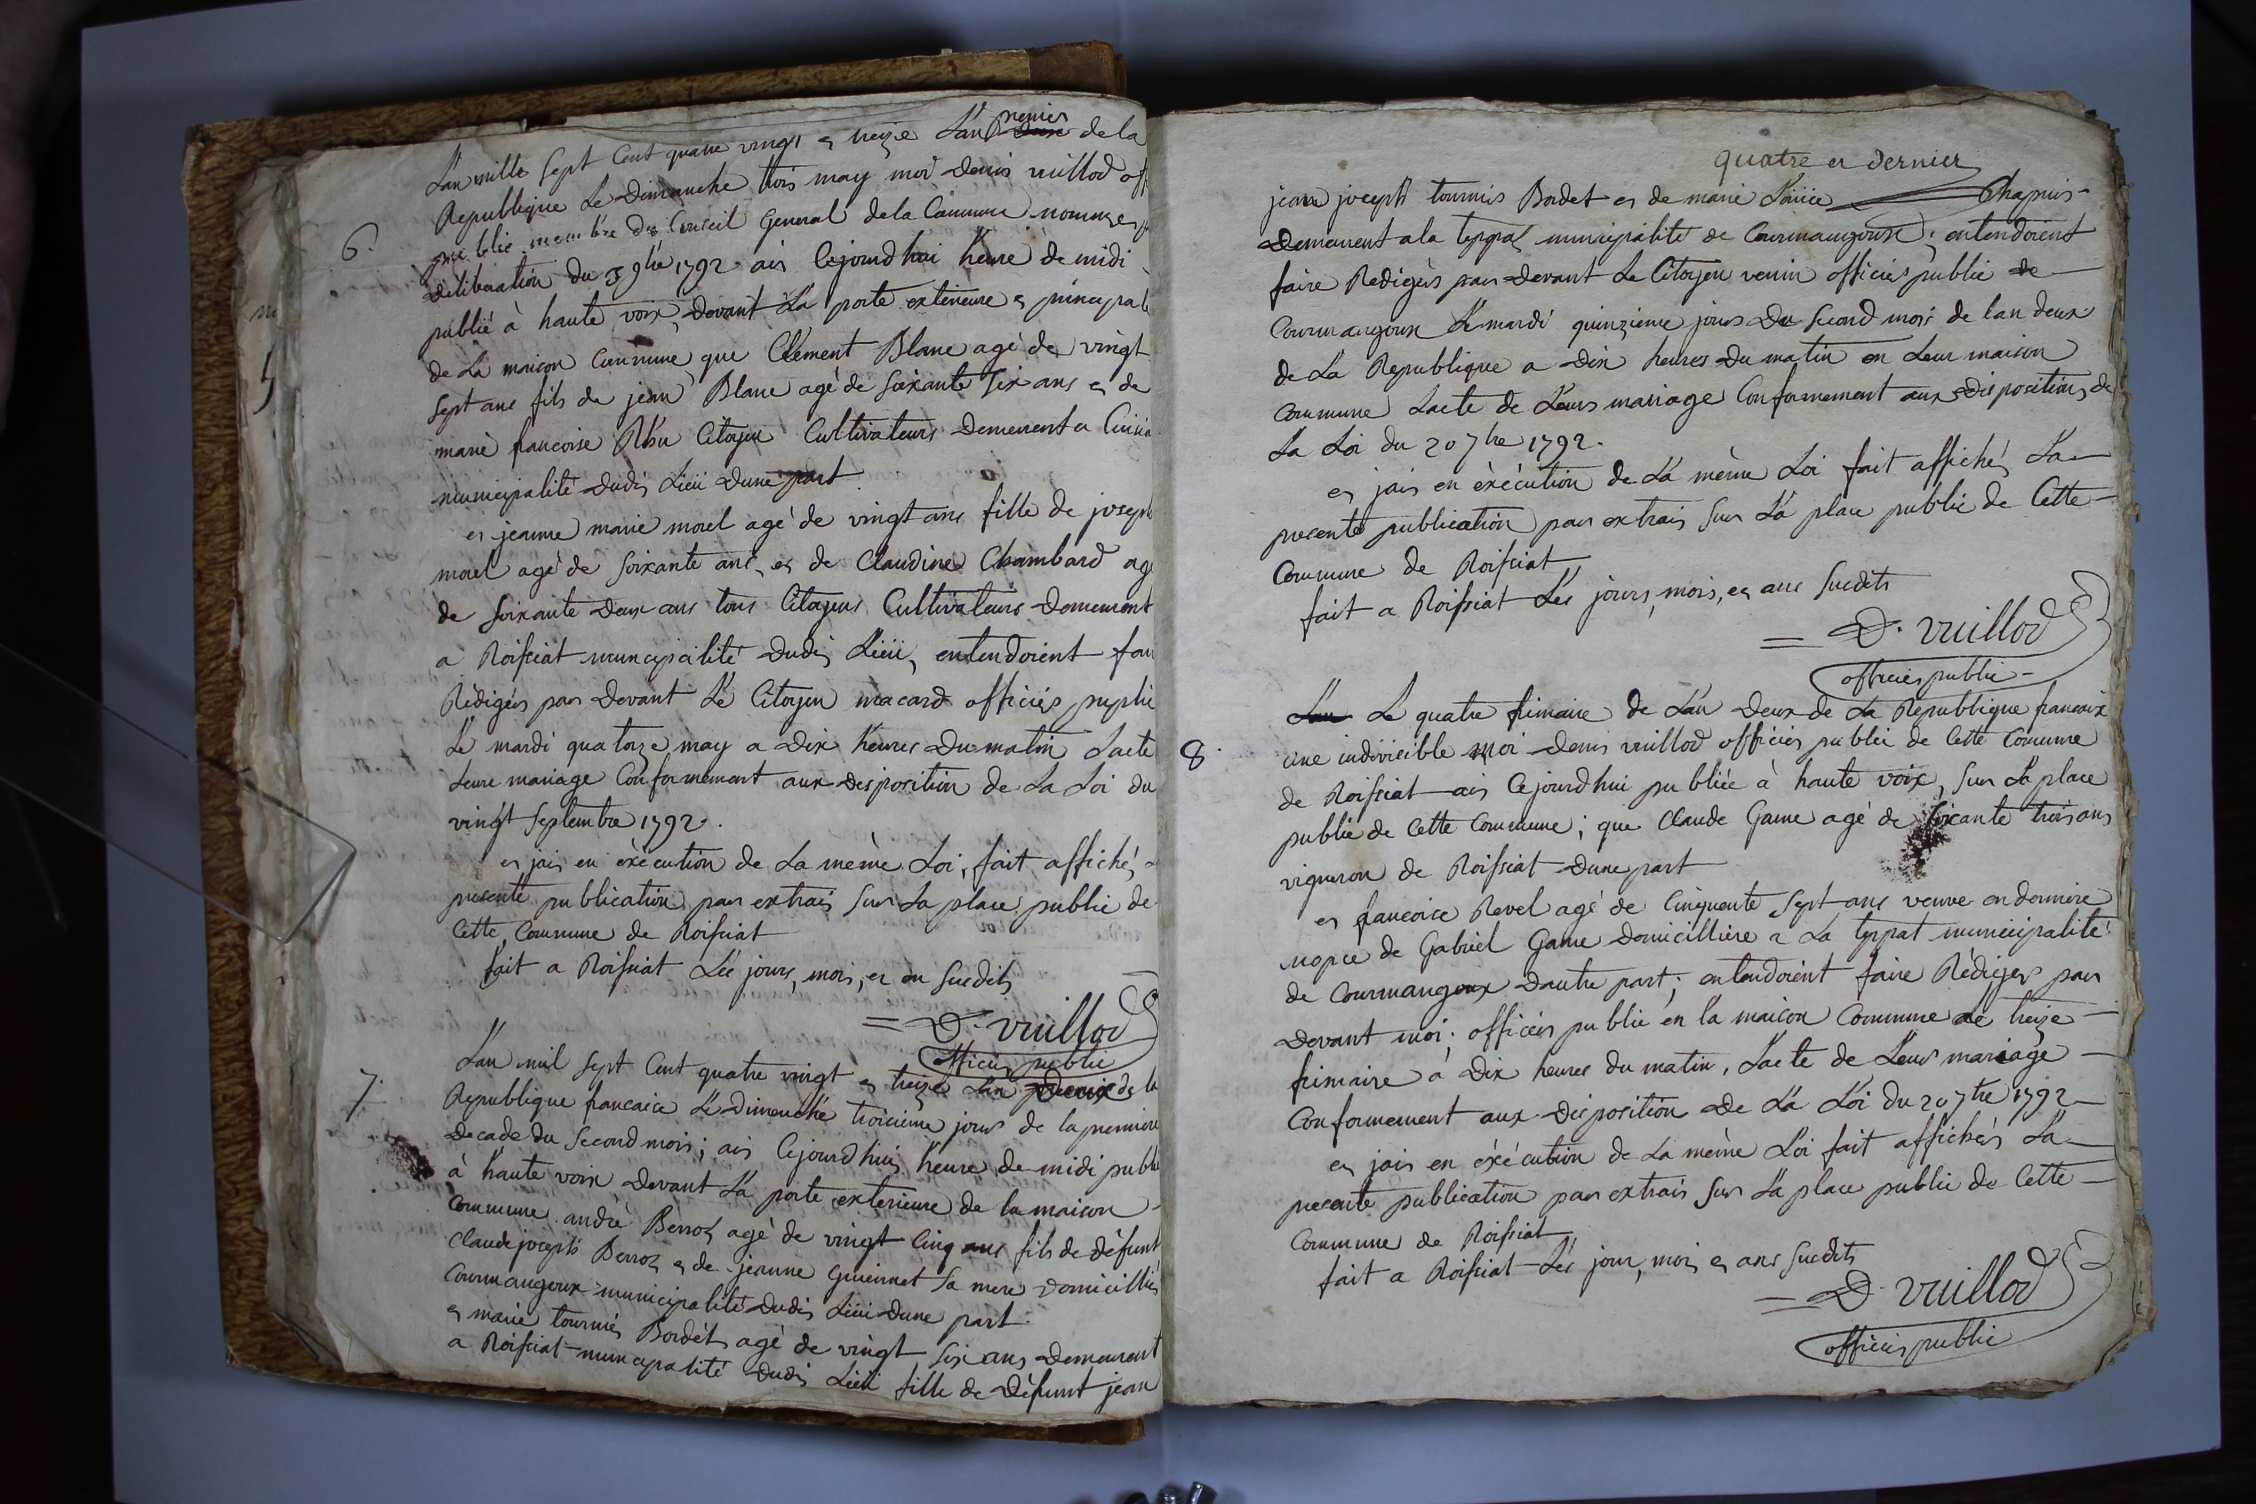 6.
L'an mille sept Cent quatre vingt et treize L'an premier deux de la
Republique Le Dimanche trois may moi Denis vuillod off
public membre du Conseil General de la Commune nommé
deliberation du 9bre 1792 ais Cejourdhui heure de midi
publié à haute voix, Devant La porte exterieure et principal
de La maison Commune que Clément Blanc agé de vingt
sept ans fils de jean Blanc agé de soixante six ans et de
marie francoise Citoyen Cultivateurs Demeurent a
municipalité dudit Lieu Dune part
et jeanne marie morel agé de vingt ans fille de joseph
morel agé de soixante ans, et de Claudine Chambard agé
de soixante deux ans tous Citoyens Cultivateurs Demeurent
a Roissiat municipalité Dudit Lieu, entendoient fair
Rédigér par Devant Le Citoyen macard officiér puplic
Le mardi quatorze may a Dix heures Du matin Lacte
Leure mariage Conformément aux Desposition de La Loi du
vingt Septembre 1792.
et jais en éxécution de La mème Loi, fait affiché,
presente publication par extrais sur La place public de
Cette Commune de Roissiat
fait a Roissiat Lés jours, mois, et an susdits
= D. vuillod
officiér public
7.
L'an mil sept Cent quatre vingt et treize Lan Deux de la
Republique francaice Le Dimenche troicieme jours de la premiere
Decade du second mois; ais Cejourdhui heure de midi public
à haute voix Devant La porte exterieure de la maison
Commune andré Berrod agé de vingt Cinq ans fils de défunt
Claude joseph Berrod et de jeanne Guienet sa mere Domicilliés
Courmangoux municipalité Dudit Lieu Dune part.
et marie tournié Bordet agé de vingt six ans Demeurent
a Roissiat municipalité Dudit Lieu fille de Défunt jean
quatre et dernier
jean joceph tournis Bordet et de marie Chapuis
Demeurent a la municipalité de Courmangoux; entendoient
faire Redigér par Devant Le Citoyen venin officiér public de
Courmangoux Le mardi quinzieme jours Du second mois de lan deux
de La Republique a Dix heures Du matin en Leur maison
Commune Lacte de Leurs mariage Conformement aux Dispositions de
La Loi du 20 7bre 1792.
et jais en éxécution de La mème Loi fait affiché, La
precente publication par extrais sur La place public de Cette
Commune de Roissiat
fait a Roissiat Les jours, mois, et ans susdits
= D. vuillod
officiér public
8.
Lan Le quatre frimaire de L'an Deux de La Republique francaix
une indivicible moi Denis vuillod officiér public de Cette Comune
de Roissiat ais Cejourdhui publiée à haute voix, sur La place
public de Cette Commune; que Claude Game agé de soixante trois ans
vigneron de Roissiat Dune part
et francoice Revel agé de Cinquente sept ans veuve en derniere
nopce de Gabriel Game Domicilliére a La tyrpat municipalité
de Courmangoux Dautre part; entendoient faire Rédiger par
Devant moi officiér public en la maison Commune de treize
frimaire a Dix heures du matin, Lacte de Leur mariage
Conformement aux Disposition De La Loi du 20 7bre 1792
et jais en éxécution de La mème Loi fait affichés La
precente publication par extrais sur La place public de Cette
Commune de Roissiat
fait a Roissiat Lés jour, mois et ans susdits
= D. vuillod
officiér public